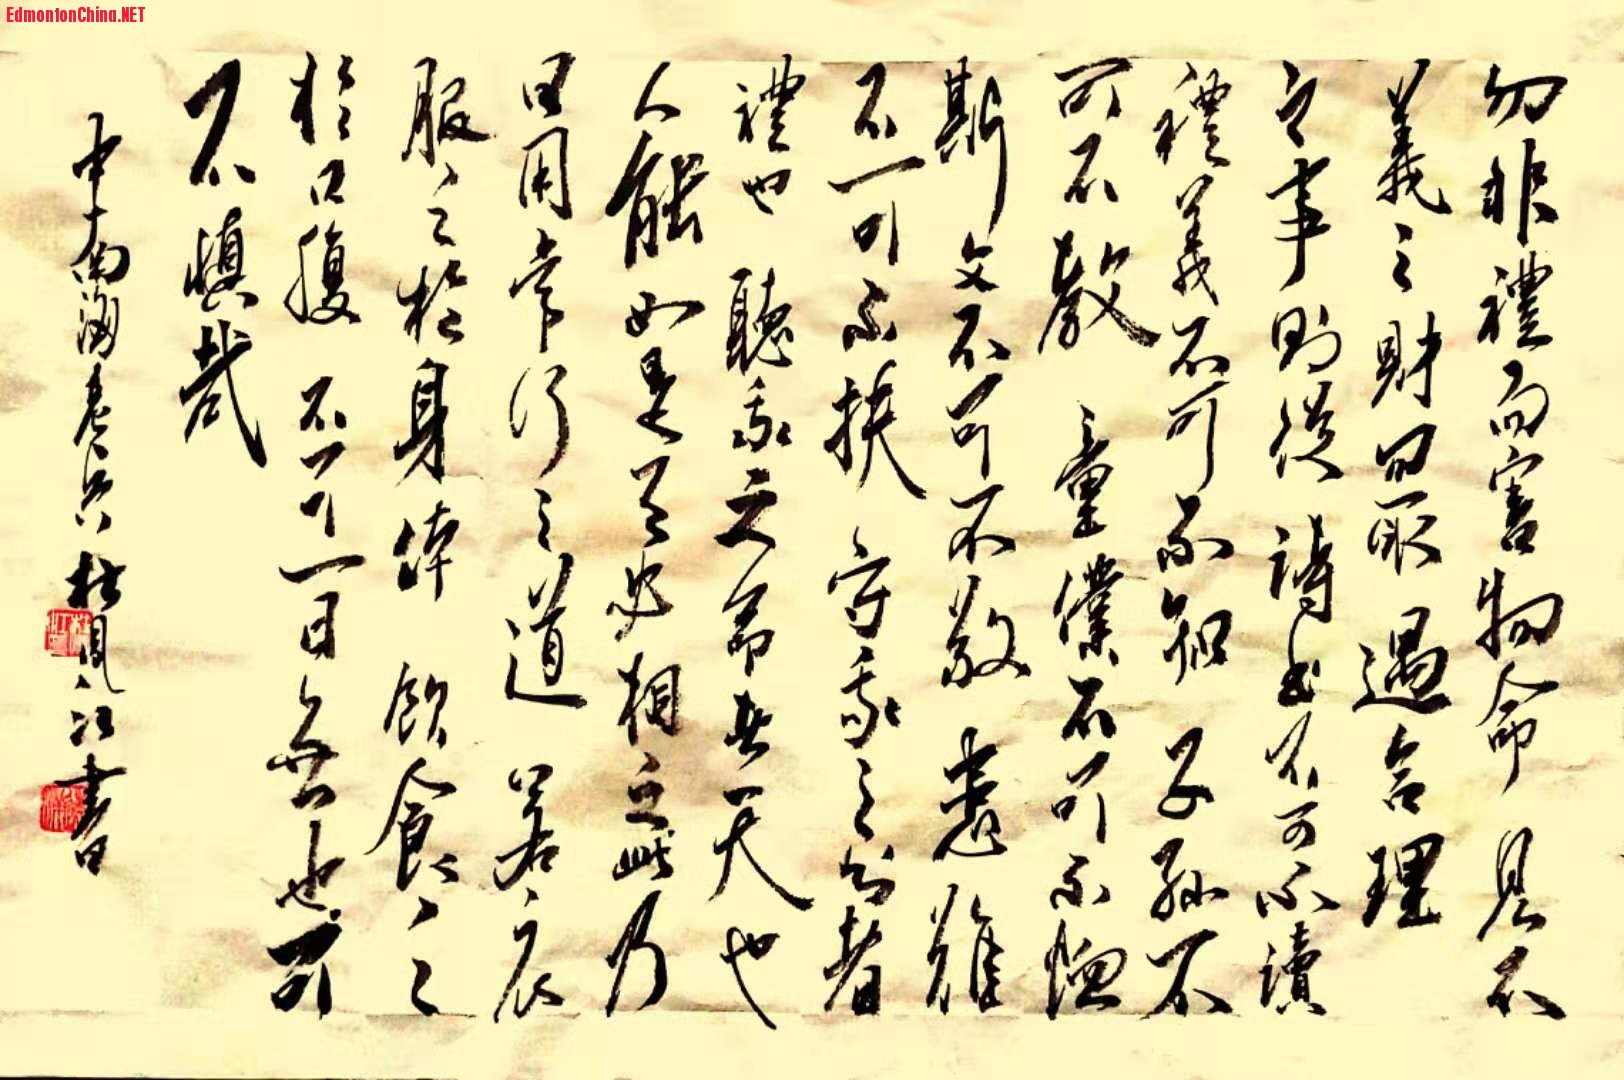 EdmontonChina.NET
勿非禮而害物命見不
義之財取遇合理
之事則從詩書不可不讀
禮義不可不知子孫不
可不教童僕不可不恤
斯文不可不敬患難
不可不扶守我之分者
禮也聽我之命者天也
人能如是天必相之此乃
日用常行之道若衣
服之於身體飲食之
於口腹不可一日無也可
不慎哉
中南海老兵杜江書